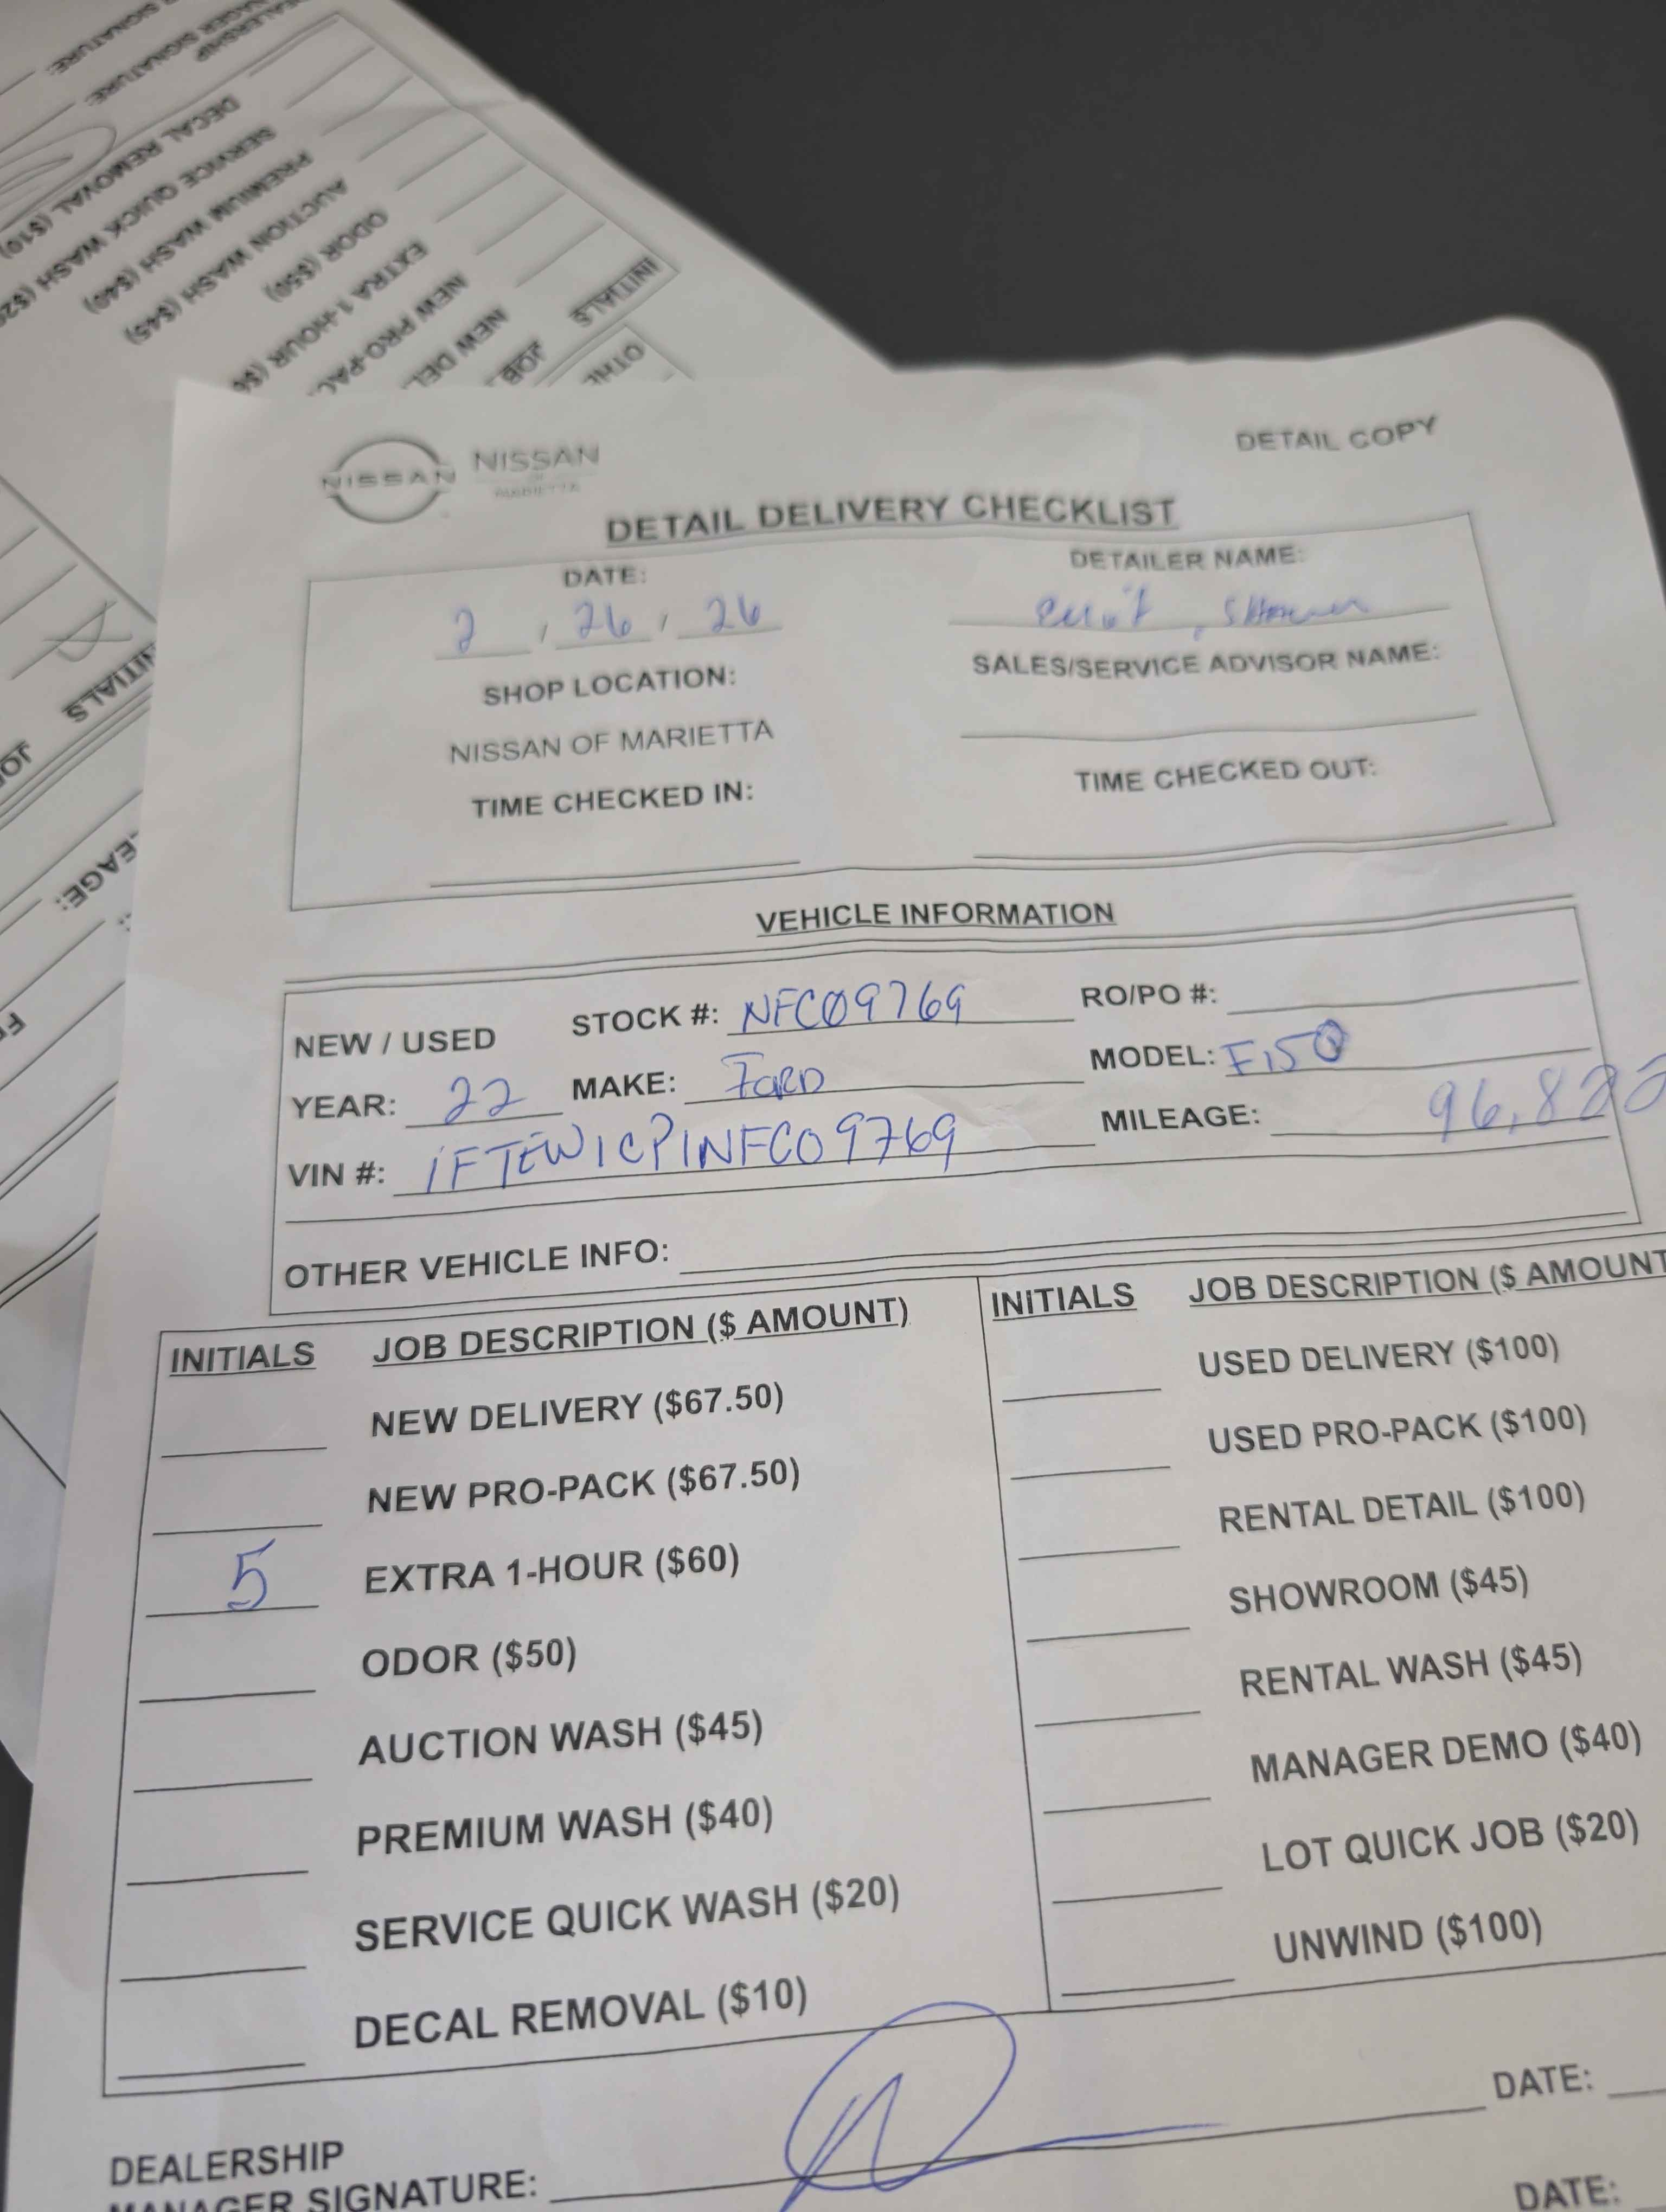 DETAIL COPY
NISSAN NISSAN
OF
MARIETTA
DETAIL DELIVERY CHECKLIST
DATE: DETAILER NAME:
2 , 26 , 26
SHOP LOCATION: SALES/SERVICE ADVISOR NAME:
NISSAN OF MARIETTA
TIME CHECKED IN: TIME CHECKED OUT:
VEHICLE INFORMATION
NEW / USED STOCK #: NFC09769 RO/PO #:
YEAR: 22 MAKE: FORD MODEL: F150
VIN #: 1FTEW1CP1NFC09769 MILEAGE: 96,822
OTHER VEHICLE INFO:
INITIALS JOB DESCRIPTION ($ AMOUNT) INITIALS JOB DESCRIPTION ($ AMOUNT
NEW DELIVERY ($67.50) USED DELIVERY ($100)
NEW PRO-PACK ($67.50) USED PRO-PACK ($100)
5 EXTRA 1-HOUR ($60) RENTAL DETAIL ($100)
ODOR ($50) SHOWROOM ($45)
AUCTION WASH ($45) RENTAL WASH ($45)
PREMIUM WASH ($40) MANAGER DEMO ($40)
SERVICE QUICK WASH ($20) LOT QUICK JOB ($20)
DECAL REMOVAL ($10) UNWIND ($100)
DEALERSHIP DATE:
MANAGER SIGNATURE:
DATE:
SIGNATURE:
DEALERSHIP
MANAGER SIGNATURE:
DECAL REMOVAL ($10)
SERVICE QUICK WASH ($20
PREMIUM WASH ($40)
AUCTION WASH ($45)
ODOR ($50)
EXTRA 1-HOUR ($6
NEW PRO-PAC
NEW DEL
INITIALS JOB
OTH
INITIALS JO
EAGE: